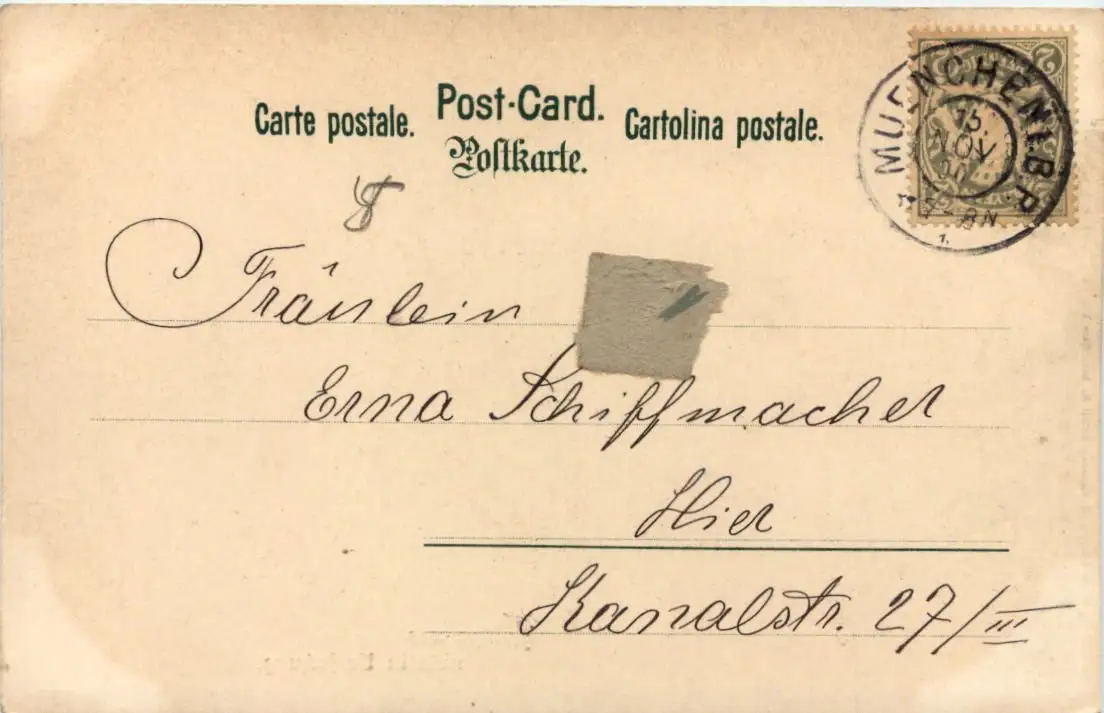 Carte postale.
Post-Card.
Cartolina postale.
Postkarte.
MUENCHEN I.B.P.
NOV
2
8
Fräulein
Erna Schiffmacher
Hier
Kanalstr. 27/III